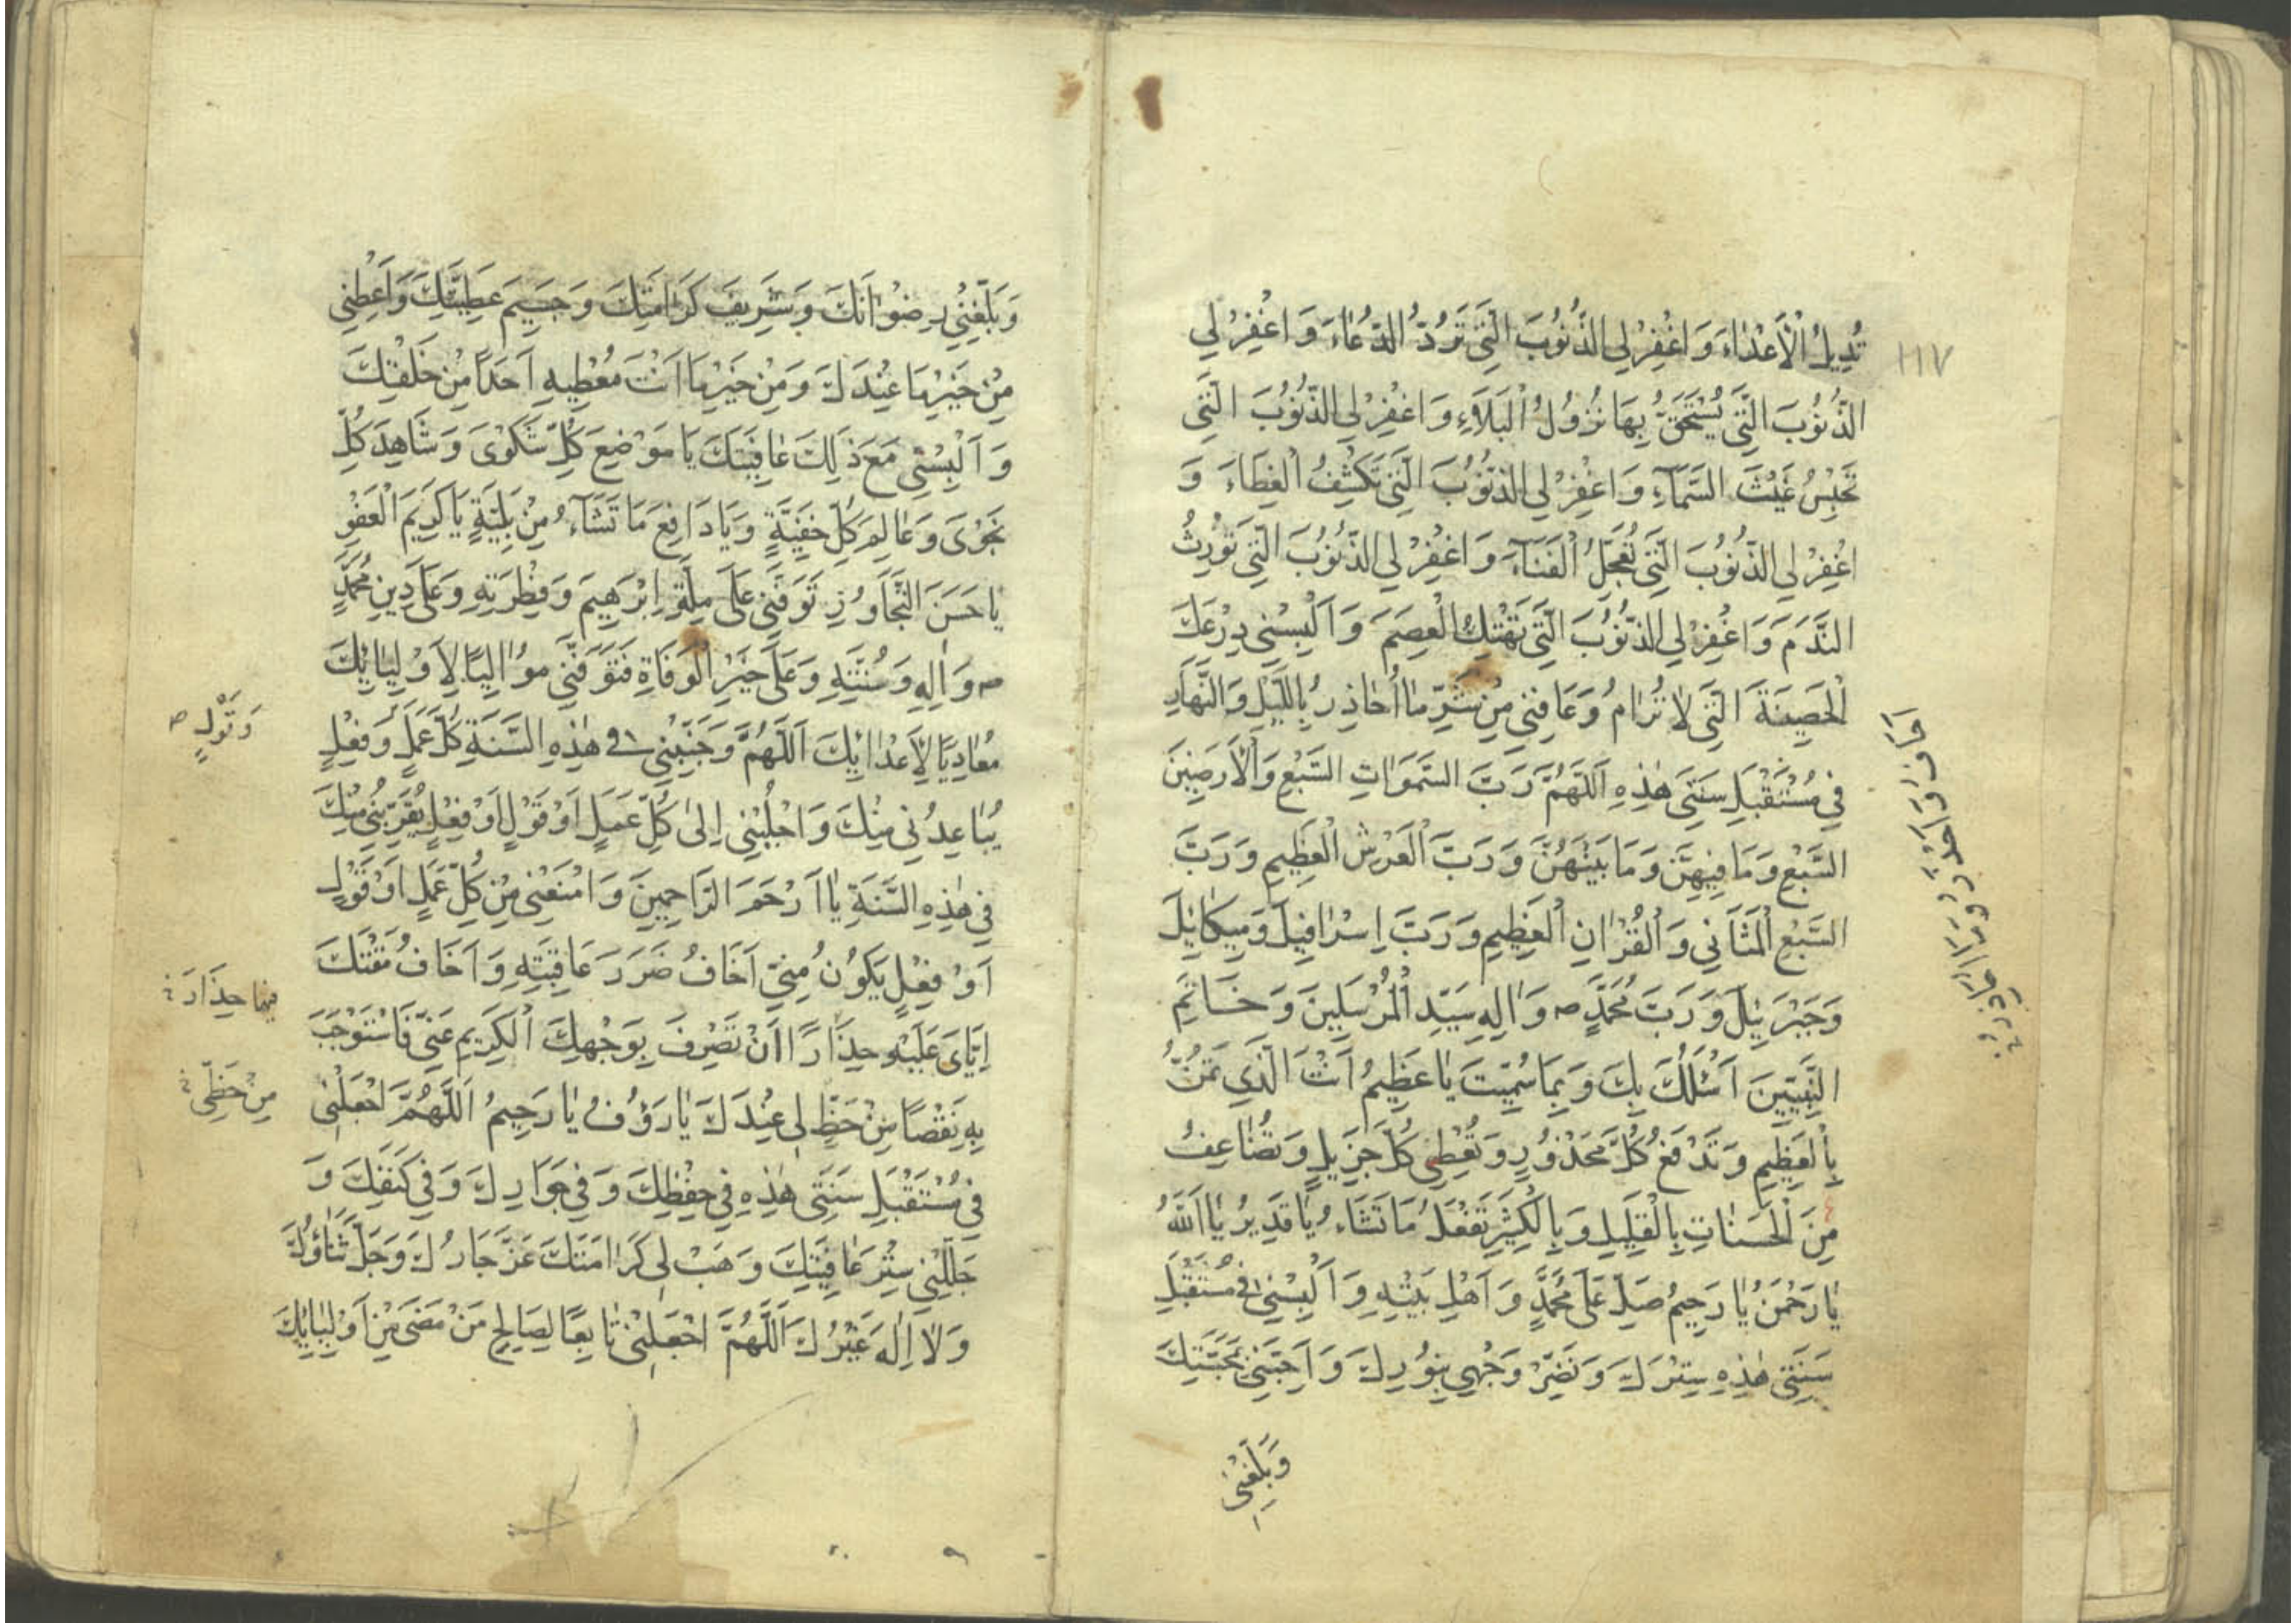 ١١٧
تُدِيلُ الْأَعْدَاءَ وَاغْفِرْ لِي الذُّنُوبَ الَّتِي تَرُدُّ الدُّعَاءَ وَاغْفِرْ لِي
الذُّنُوبَ الَّتِي يُسْتَحَقُّ بِهَا نُزُولُ الْبَلَاءِ وَاغْفِرْ لِي الذُّنُوبَ الَّتِي
تَحْبِسُ غَيْثَ السَّمَآءِ وَاغْفِرْ لِي الذُّنُوبَ الَّتِي تَكْشِفُ الْغِطَاءَ وَ
اغْفِرْ لِي الذُّنُوبَ الَّتِي تُعَجِّلُ الْفَنَآءَ وَاغْفِرْ لِي الذُّنُوبَ الَّتِي تُورِثُ
النَّدَمَ وَاغْفِرْ لِي الذُّنُوبَ الَّتِي تَهْتِكُ الْعِصَمَ وَاَلْبِسْنِي دِرْعَكَ
الْحَصِينَةَ الَّتِي لَا تُرَامُ وَعَافِنِي مِنْ شَرِّ مَا اُحَاذِرُ بِاللَّيْلِ وَالنَّهَارِ
فِي مُسْتَقْبَلِ سَنَتِي هٰذِهِ اَللّٰهُمَّ رَبَّ السَّمٰوَاتِ السَّبْعِ وَالْأَرَضِينَ
السَّبْعِ وَمَا فِيهِنَّ وَمَا بَيْنَهُنَّ وَرَبَّ الْعَرْشِ الْعَظِيمِ وَرَبَّ
السَّبْعِ الْمَثَانِي وَالْقُرْاٰنِ الْعَظِيمِ وَرَبَّ اِسْرَافِيلَ وَمِيكَائِلَ
وَجَبْرَئِيلَ وَرَبَّ مُحَمَّدٍ ص وَاٰلِهِ سَيِّدِ الْمُرْسَلِينَ وَخَاتِمِ
النَّبِيِّينَ اَسْئَلُكَ بِكَ وَبِمَا سُمِّيتَ يَا عَظِيمُ اَنْتَ الَّذِي تَمُنُّ
بِالْعَظِيمِ وَتَدْفَعُ كُلَّ مَحْذُورٍ وَتُعْطِي كُلَّ جَزِيلٍ وَتُضَاعِفُ
مِنَ الْحَسَنَاتِ بِالْقَلِيلِ وَبِالْكَثِيرِ تَفْعَلُ مَا تَشَاءُ يَا قَدِيرُ يَا اَللّٰهُ
يَا رَحْمٰنُ يَا رَحِيمُ صَلِّ عَلَى مُحَمَّدٍ وَاَهْلِ بَيْتِهِ وَاَلْبِسْنِي فِي مُسْتَقْبَلِ
سَنَتِي هٰذِهِ سِتْرَكَ وَنَضِّرْ وَجْهِي بِنُورِكَ وَاَحِبَّنِي بِمَحَبَّتِكَ
وَبَلِّغْنِي
وَبَلِّغْنِي رِضْوَانَكَ وَشَرِيفَ كَرَامَتِكَ وَجَسِيمَ عَطِيَّتِكَ وَاَعْطِنِي
مِنْ خَيْرِ مَا عِنْدَكَ وَمِنْ خَيْرِ مَا اَنْتَ مُعْطِيهِ اَحَدًا مِنْ خَلْقِكَ
وَاَلْبِسْنِي مَعَ ذَلِكَ عَافِيَتَكَ يَا مَوْضِعَ كُلِّ شَكْوَى وَشَاهِدَ كُلِّ
نَجْوَى وَعَالِمَ كُلِّ خَفِيَّةٍ وَيَا دَافِعَ مَا تَشَآءُ مِنْ بَلِيَّةٍ يَا كَرِيمَ الْعَفْوِ
يَا حَسَنَ التَّجَاوُزِ تَوَفَّنِي عَلَى مِلَّةِ اِبْرٰهِيمَ وَفِطْرَتِهِ وَعَلَى دِينِ مُحَمَّدٍ
ص وَاٰلِهِ وَسُنَّتِهِ وَعَلَى خَيْرِ الْوَفَاةِ فَتَوَفَّنِي مُوَالِيًا لِاَوْلِيَائِكَ
مُعَادِيًا لِاَعْدَائِكَ اَللّٰهُمَّ وَجَنِّبْنِي فِي هٰذِهِ السَّنَةِ كُلَّ عَمَلٍ وَفِعْلٍ
وَقَوْلٍ ص
يُبَاعِدُنِي مِنْكَ وَاجْلُبْنِي اِلَى كُلِّ عَمَلٍ اَوْ قَوْلٍ اَوْ فِعْلٍ يُقَرِّبُنِي مِنْكَ
فِي هٰذِهِ السَّنَةِ يَا اَرْحَمَ الرَّاحِمِينَ وَامْنَعْنِي مِنْ كُلِّ عَمَلٍ اَوْ قَوْلٍ
اَوْ فِعْلٍ يَكُونُ مِنِّي اَخَافُ ضَرَرَ عَاقِبَتِهِ وَاَخَافُ مَقْتَكَ
حِذَارَ
اِيَّايَ عَلَيْهِ حِذَارًا اَنْ تَصْرِفَ بِوَجْهِكَ الْكَرِيمِ عَنِّي فَاسْتَوْجِبَ
بِهِ نَقْصًا مِنْ حَظٍّ لِي عِنْدَكَ يَا رَؤُفُ يَا رَحِيمُ اَللّٰهُمَّ اجْعَلْنِي
مِنْ حَظِّي
فِي مُسْتَقْبَلِ سَنَتِي هٰذِهِ فِي حِفْظِكَ وَفِي جَوَارِكَ وَفِي كَنَفِكَ وَ
جَلِّلْنِي سِتْرَ عَافِيَتِكَ وَهَبْ لِي كَرَامَتَكَ عَزَّ جَارُكَ وَجَلَّ ثَنَاؤُكَ
وَلَا اِلٰهَ غَيْرُكَ اَللّٰهُمَّ اجْعَلْنِي تَابِعًا لِصَالِحِ مَنْ مَضَى مِنْ اَوْلِيَائِكَ